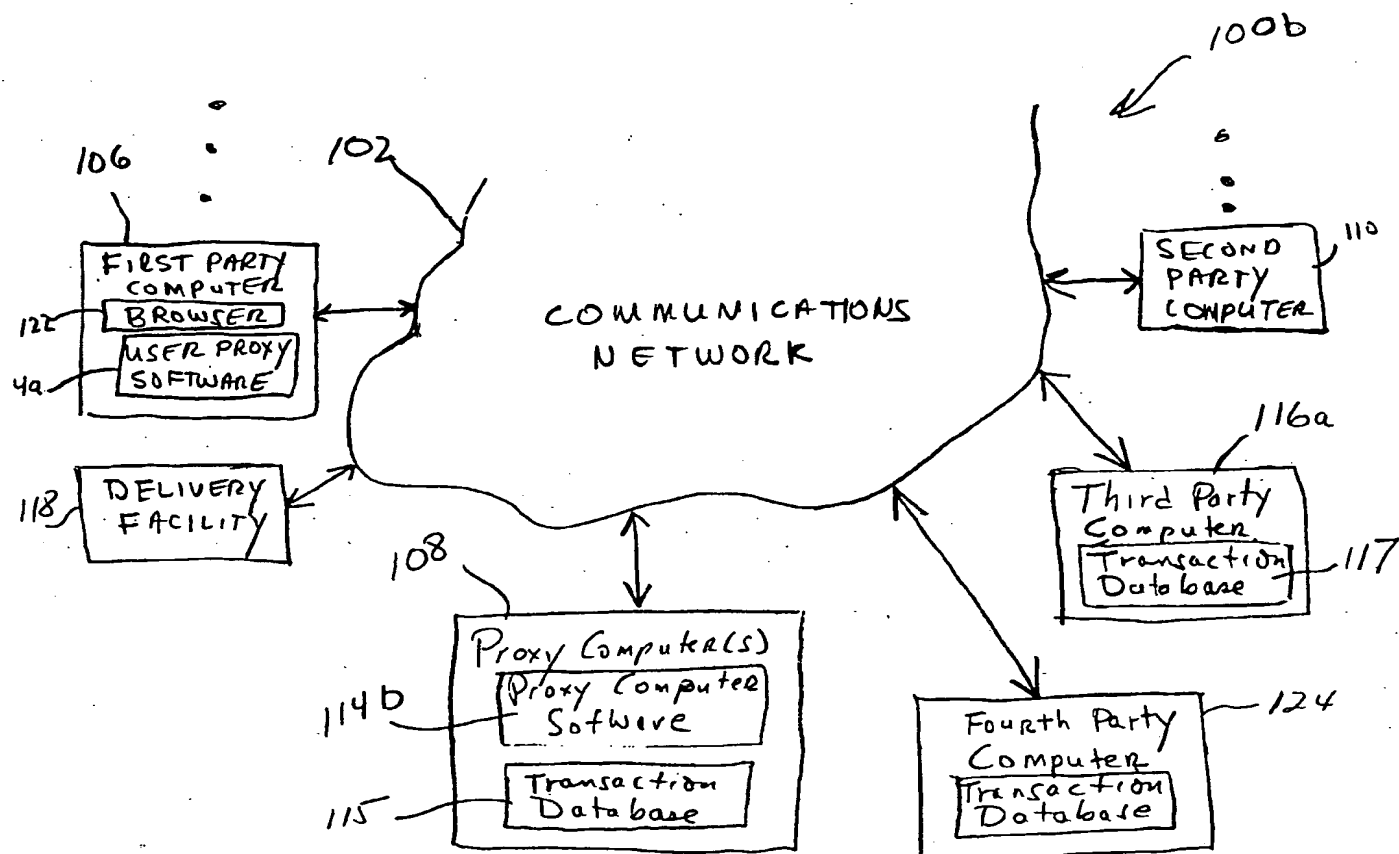 100b
106
102
FIRST PARTY
COMPUTER
122
BROWSER
4a
USER PROXY
SOFTWARE
COMMUNICATIONS
NETWORK
SECOND
PARTY
COMPUTER
110
118
DELIVERY
FACILITY
116a
Third Party
Computer
Transaction
Database
117
108
Proxy Computer(s)
Proxy Computer
Software
114b
Transaction
Database
115
Fourth Party
Computer
Transaction
Database
124